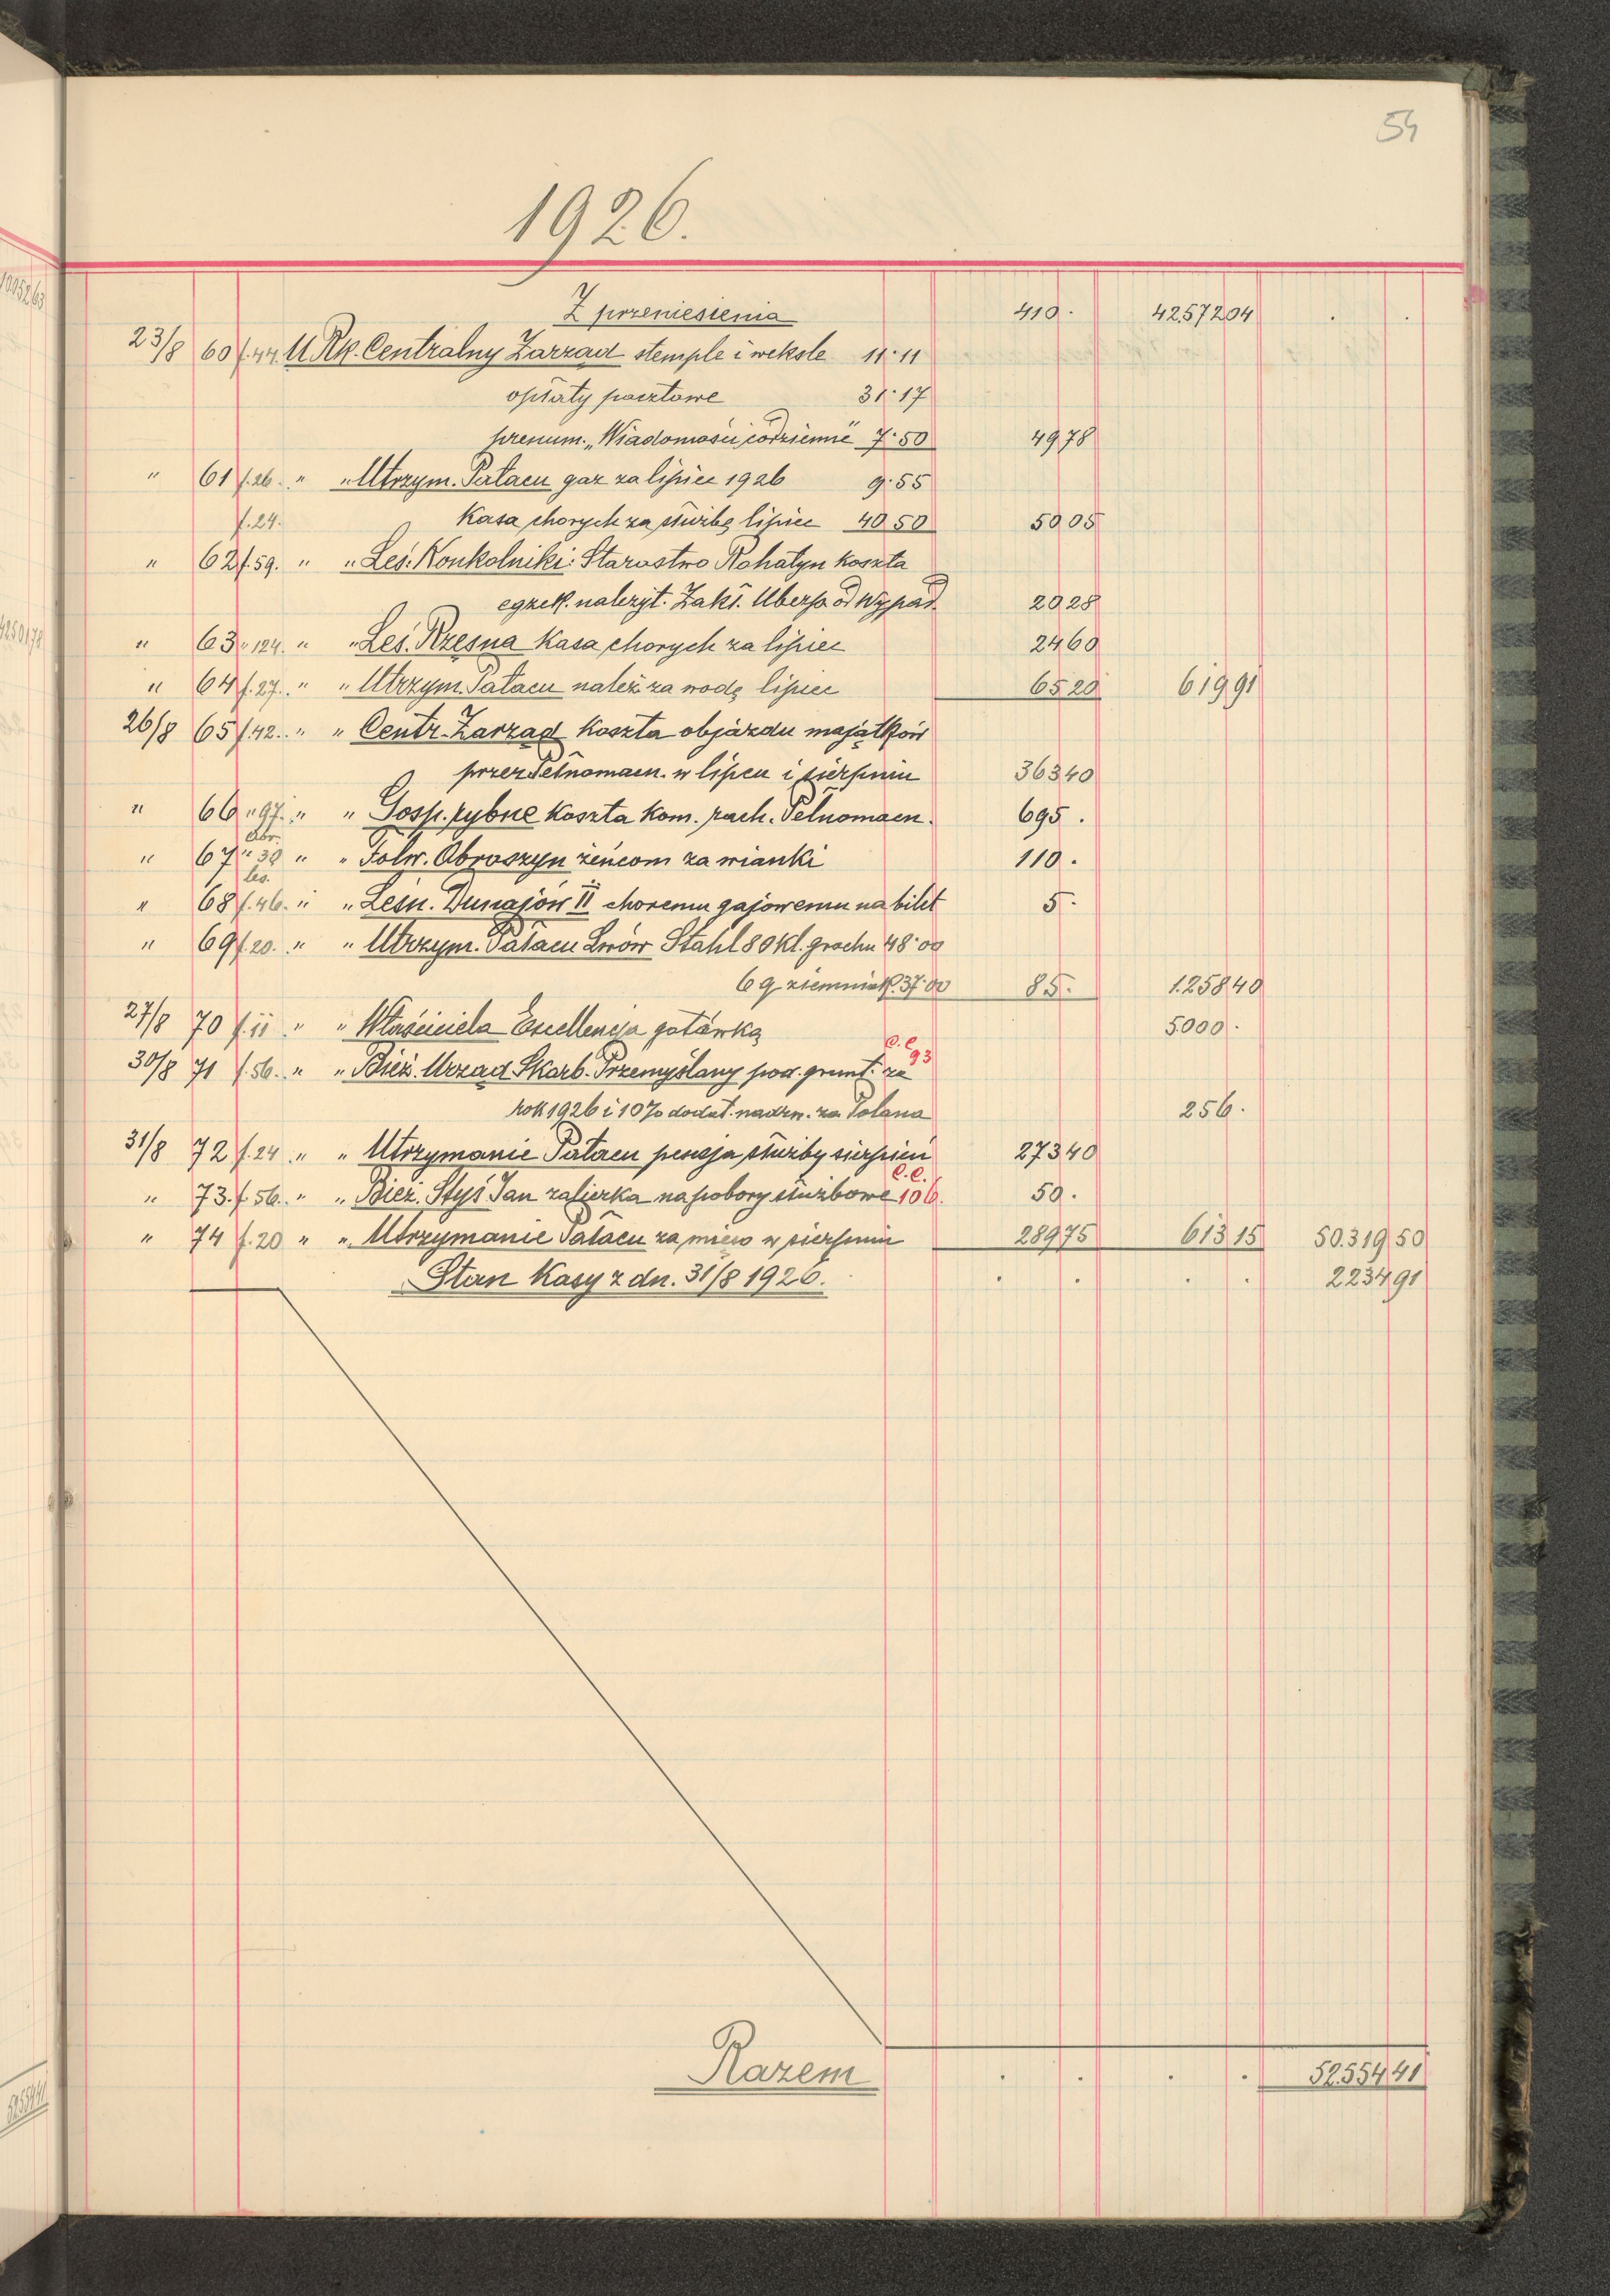 54
1926.
Z przeniesienia 410. 42572 04 . .
23/8 60 f.44. U Rk. Centralny Zarząd stemple i weksle 11·11
opłaty pocztowe 31·17
prenum. „Wiadomości codzienne" 7·50 49 78
" 61 f.26. " " Utrzym. Pałacu gaz za lipiec 1926 9·55
f.24. Kasa chorych za służbę lipiec 40 50 50 05
" 62 f.59. " " Leś. Konkolniki: Starostwo Rohatyn koszta
egzek. należyt. Zakł. Ubezp. od Wypad. 20 28
" 63 " 124. " " Leś. Rzęsna Kasa chorych za lipiec 24 60
" 64 f.27. " " Utrzym. Pałacu należ. za wodę lipiec 65 20 619 91
26/8 65 f.42. " " Centr. Zarząd koszta objazdu majątków
przez Pełnomocn. w lipcu i sierpniu 363 40
" 66 " 97. " " Gosp. rybne koszta kom. rach. Pełnomocn. 695 .
Obr.
" 67 " 38 " " Folw. Obroszyn żeńcom za wianki 110 .
les.
" 68 f.46. " " Leśn. Dunajów II choremu gajowemu na bilet 5 .
" 69 f.20. " " Utrzym. Pałacu Lwów Stahl 80 kl. grochu 48·00
6 q ziemniak. 37·00 85. 1.258 40
27/8 70 f.11 " " Właściciela Excellencja gotówką 5.000 .
c.c. 93
30/8 71 f.56. " " Bież. Urząd Skarb. Przemyślany pod. grunt. za
rok 1926 i 10% dodat. nadzw. za Polana 256.
31/8 72 f.24 " " Utrzymanie Pałacu pensja służby sierpień 273 40
c.c.
" 73. f.56. " " Bież. Styś Jan zaliczka na pobory służbowe 106. 50.
" 74 f.20 " " Utrzymanie Pałacu za mięso w sierpniu 289 75 613 15 50.319 50
Stan Kasy z dn. 31/8 1926. . . . . 2234 91
Razem . . . . 52.554 41